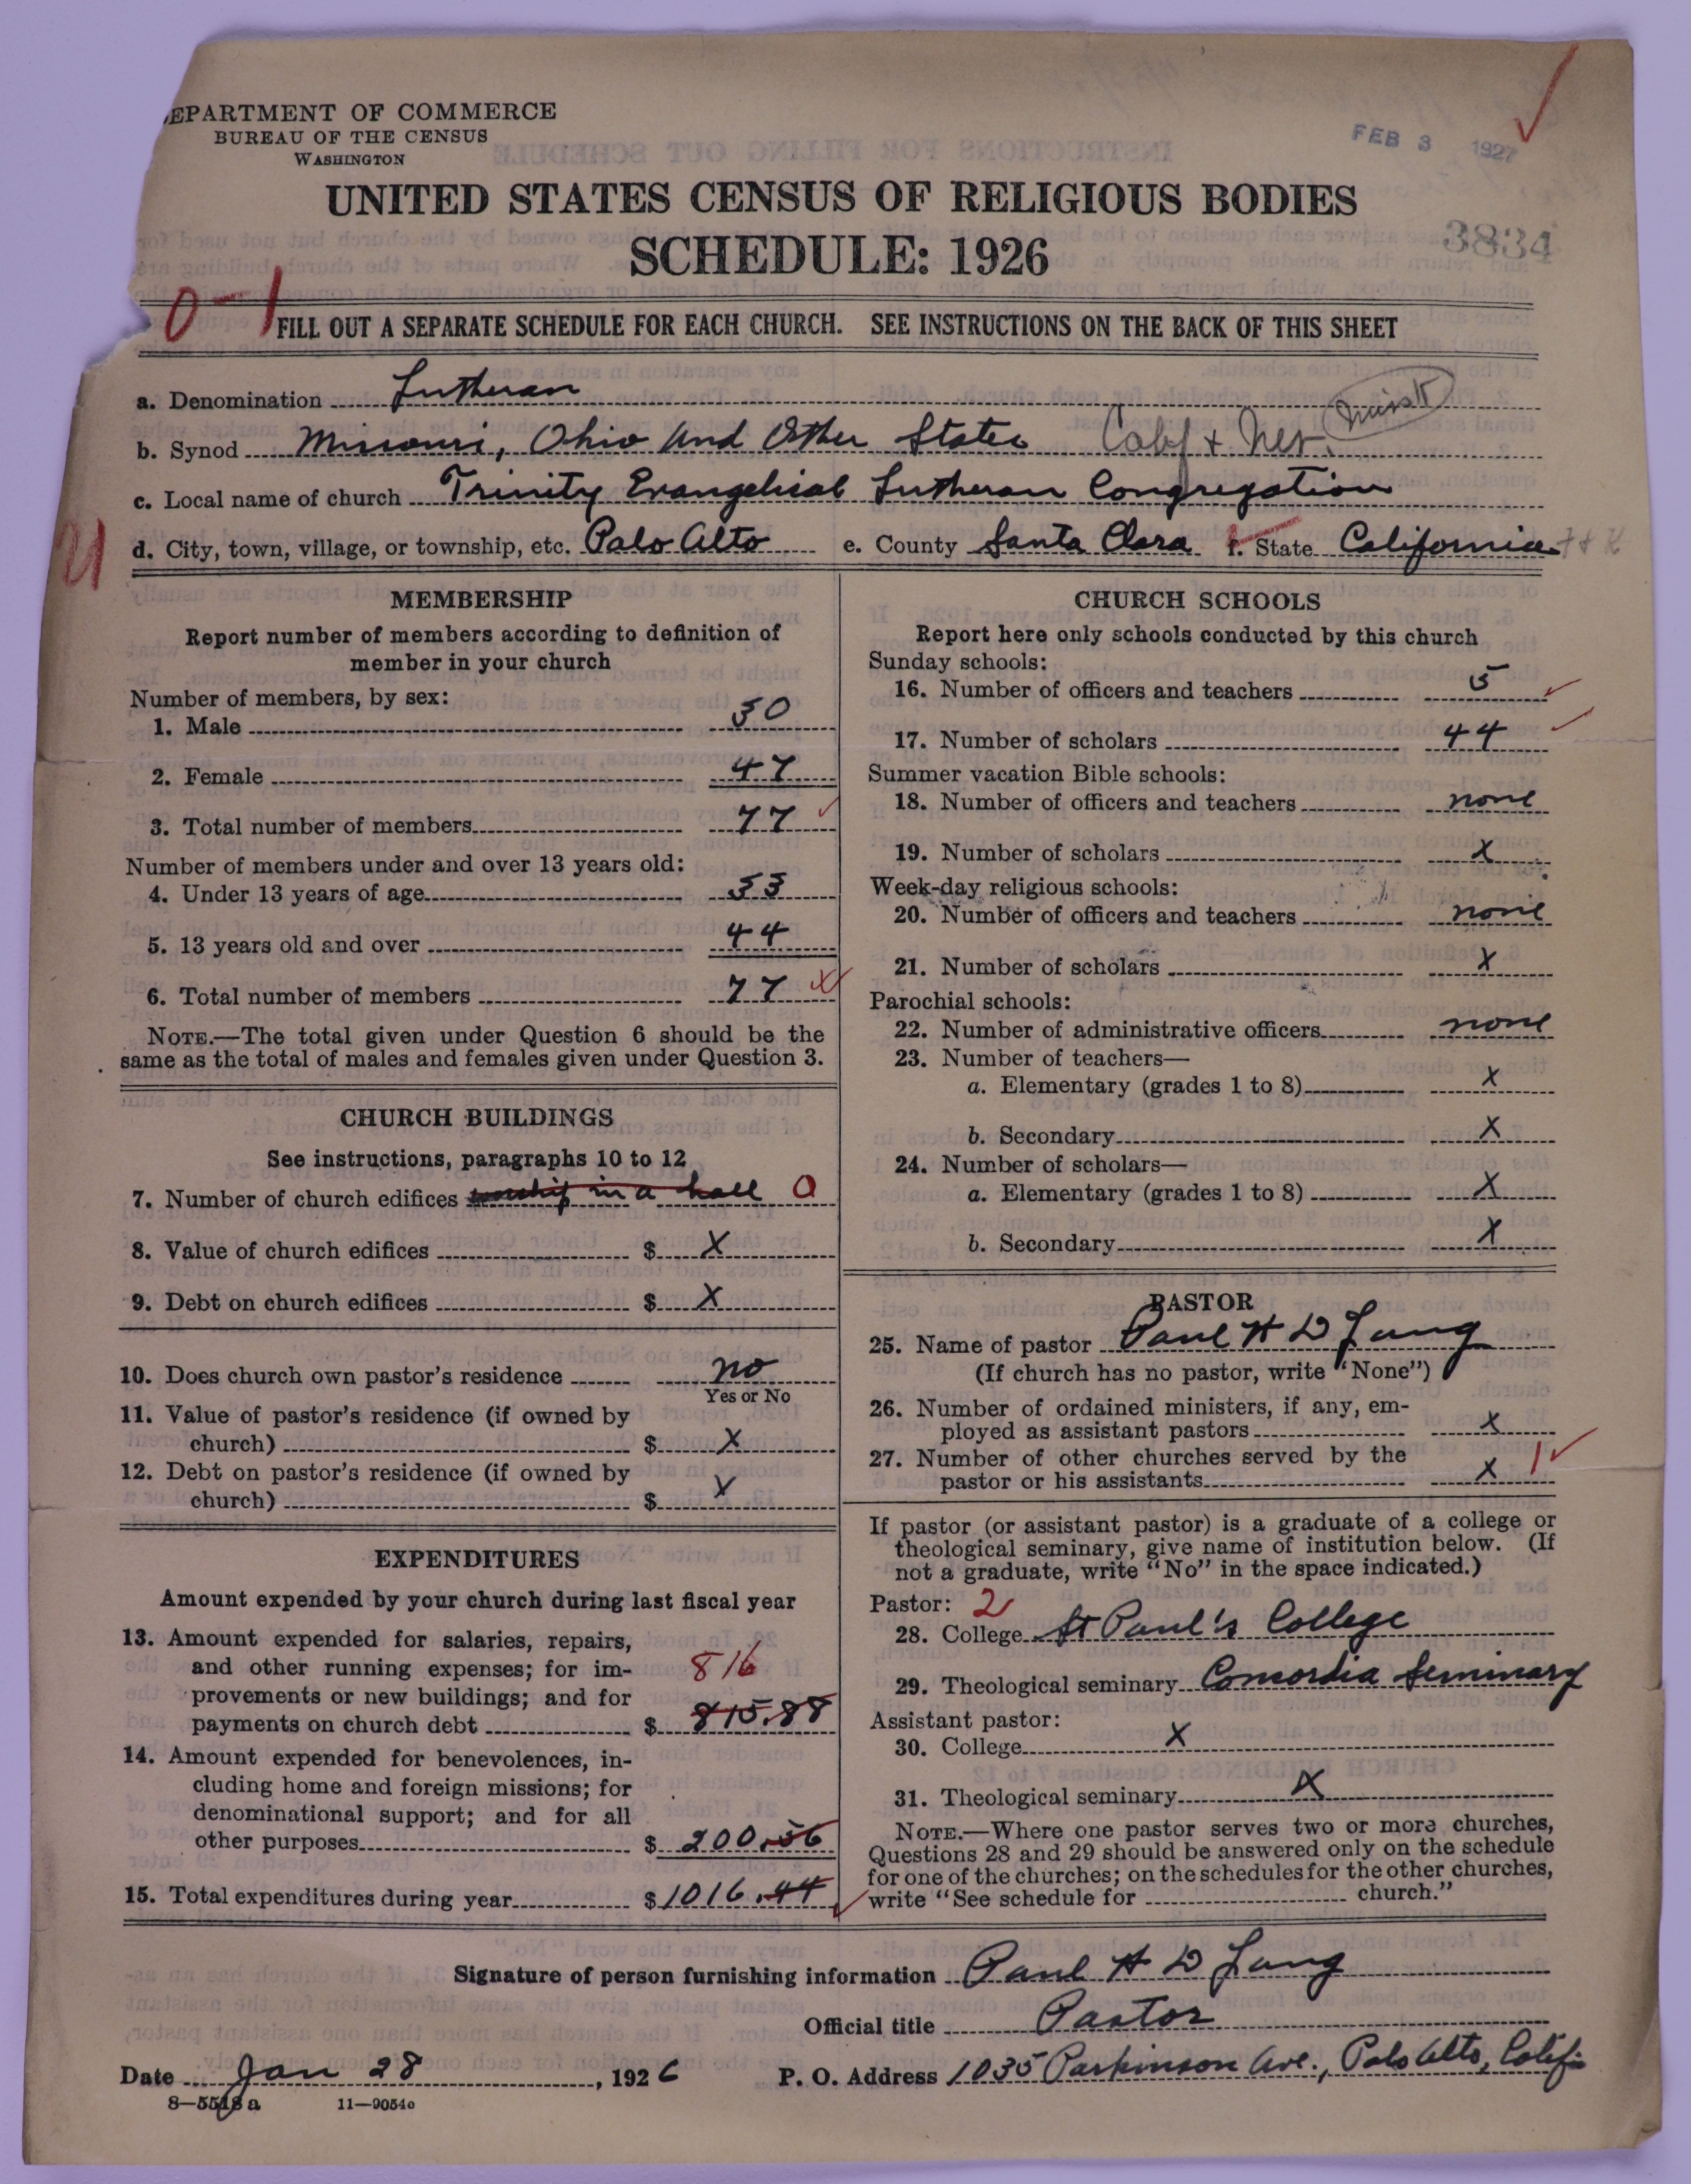 EPARTMENT OF COMMERCE
BUREAU OF THE CENSUS
WASHINGTON
FEB 3 1927
UNITED STATES CENSUS OF RELIGIOUS BODIES
SCHEDULE: 1926
3834
0-1
FILL OUT A SEPARATE SCHEDULE FOR EACH CHURCH. SEE INSTRUCTIONS ON THE BACK OF THIS SHEET
a. Denomination Lutheran
b. Synod Missouri, Ohio and Other States Calif + Nev.
c. Local name of church Trinity Evangelical Lutheran Congregation
d. City, town, village, or township, etc. Palo Alto e. County Santa Clara f. State California
MEMBERSHIP
Report number of members according to definition of
member in your church
Number of members, by sex:
1. Male 30
2. Female 47
3. Total number of members 77
Number of members under and over 13 years old:
4. Under 13 years of age 33
5. 13 years old and over 44
6. Total number of members 77
NOTE.—The total given under Question 6 should be the
same as the total of males and females given under Question 3.
CHURCH BUILDINGS
See instructions, paragraphs 10 to 12
7. Number of church edifices worship in a hall 0
8. Value of church edifices $ X
9. Debt on church edifices $ X
10. Does church own pastor's residence no
Yes or No
11. Value of pastor's residence (if owned by
church) $ X
12. Debt on pastor's residence (if owned by
church) $ X
EXPENDITURES
Amount expended by your church during last fiscal year
13. Amount expended for salaries, repairs,
and other running expenses; for im-
816
provements or new buildings; and for
payments on church debt $ 815.88
14. Amount expended for benevolences, in-
cluding home and foreign missions; for
denominational support; and for all
other purposes $ 200.56
15. Total expenditures during year $ 1016.44
CHURCH SCHOOLS
Report here only schools conducted by this church
Sunday schools:
16. Number of officers and teachers 5
17. Number of scholars 44
Summer vacation Bible schools:
18. Number of officers and teachers none
19. Number of scholars X
Week-day religious schools:
20. Number of officers and teachers none
21. Number of scholars X
Parochial schools:
22. Number of administrative officers none
23. Number of teachers—
a. Elementary (grades 1 to 8) X
b. Secondary X
24. Number of scholars—
a. Elementary (grades 1 to 8) X
b. Secondary X
PASTOR
25. Name of pastor Paul H D Lang
(If church has no pastor, write "None")
26. Number of ordained ministers, if any, em-
ployed as assistant pastors X
27. Number of other churches served by the
pastor or his assistants X 1
If pastor (or assistant pastor) is a graduate of a college or
theological seminary, give name of institution below. (If
not a graduate, write "No" in the space indicated.)
Pastor: 2
28. College St Paul's College
29. Theological seminary Concordia Seminary
Assistant pastor:
30. College X
31. Theological seminary X
NOTE.—Where one pastor serves two or more churches,
Questions 28 and 29 should be answered only on the schedule
for one of the churches; on the schedules for the other churches,
write "See schedule for church."
Signature of person furnishing information Paul H D Lang
Official title Pastor
Date Jan 28, 1926 P. O. Address 1035 Parkinson Ave., Palo Alto, Calif
8—5518 a 11—9054o